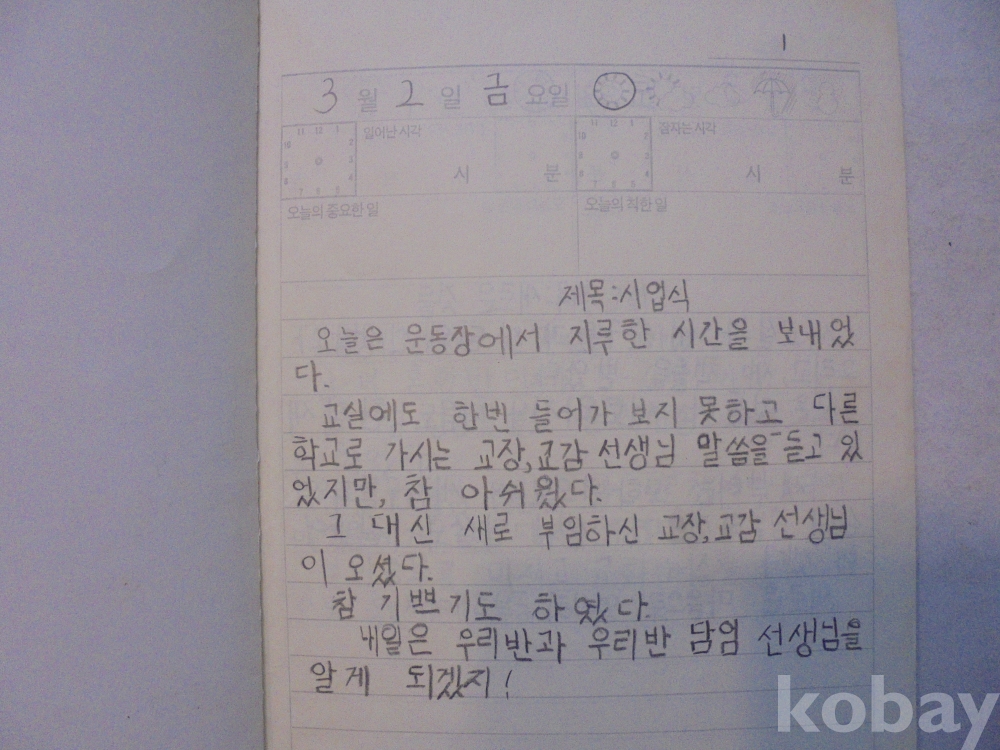 1
3 월 2 일 금 요일
11 12 1 일어난 시각 11 12 1 잠자는 시각
시 분 시 분
오늘의 중요한 일 오늘의 착한 일
제목:시업식
오늘은 운동장에서 지루한 시간을 보내었
다.
교실에도 한번 들어가 보지 못하고 다른
학교로 가시는 교장,교감 선생님 말씀을 들고 있
었지만, 참 아쉬웠다.
그 대신 새로 부임하신 교장,교감 선생님
이 오셨다.
참 기쁘기도 하였다.
내일은 우리반과 우리반 담임 선생님을
알게 되겠지!
kobay